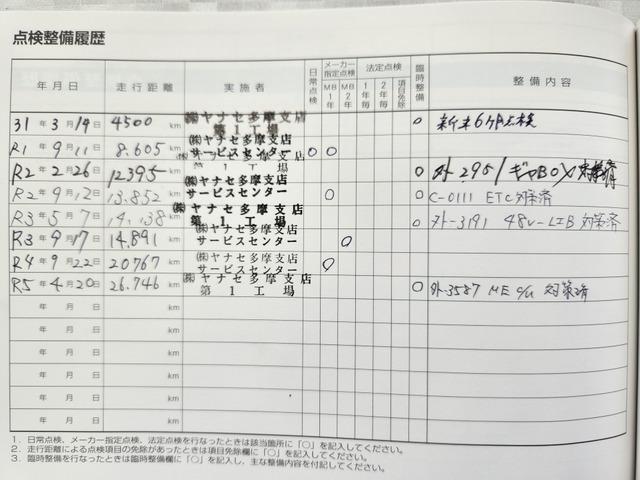 点検整備履歴
年月日 走行距離 実施者 日常点検 メーカー指定点検 MB1年 MB2年 法定点検 1年毎 2年毎 項目免除 臨時整備 整備内容
31年3月19日 4500km ㈱ヤナセ多摩支店 第1工場 ○ 新車6ヶ月点検
R1年9月11日 8.605km ㈱ヤナセ多摩支店 サービスセンター ○ ○
R2年2月26日 12395km ㈱ヤナセ多摩支店 第1工場 ○ 外-2951 ギヤBOX対策済
R2年9月12日 13.852km ㈱ヤナセ多摩支店 サービスセンター ○ ○ C-0111 ETC対策済
R3年5月7日 14.138km ㈱ヤナセ多摩支店 第1工場 ○ 外-3191 48V-LIB対策済
R3年9月17日 14.891km ㈱ヤナセ多摩支店 サービスセンター ○
R4年9月22日 20767km ㈱ヤナセ多摩支店 サービスセンター ○
R5年4月20日 26.746km ㈱ヤナセ多摩支店 第1工場 ○ 外-3587 ME c/u 対策済
年月日 km
年月日 km
年月日 km
年月日 km
年月日 km
1. 日常点検、メーカー指定点検、法定点検を行なったときは該当箇所に「○」を記入してください。
2. 走行距離による点検項目の免除があったときは項目免除欄に「○」を記入してください。
3. 臨時整備を行なったときは臨時整備欄に「○」を記入し、主な整備内容を付記してください。